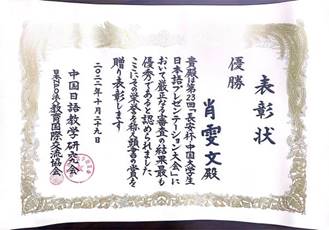 表彰状
優勝
肖雯文殿
貴殿は第23回「長安杯」中国大学生
日本語プレゼンテーション大会」に
おいて厳正なる審査の結果最も
優秀であると認められました
ここにその栄誉を称え頭書の賞を
贈り表彰します
二〇二二年十月二十九日
中国日語教学研究会
教育国際交流協会